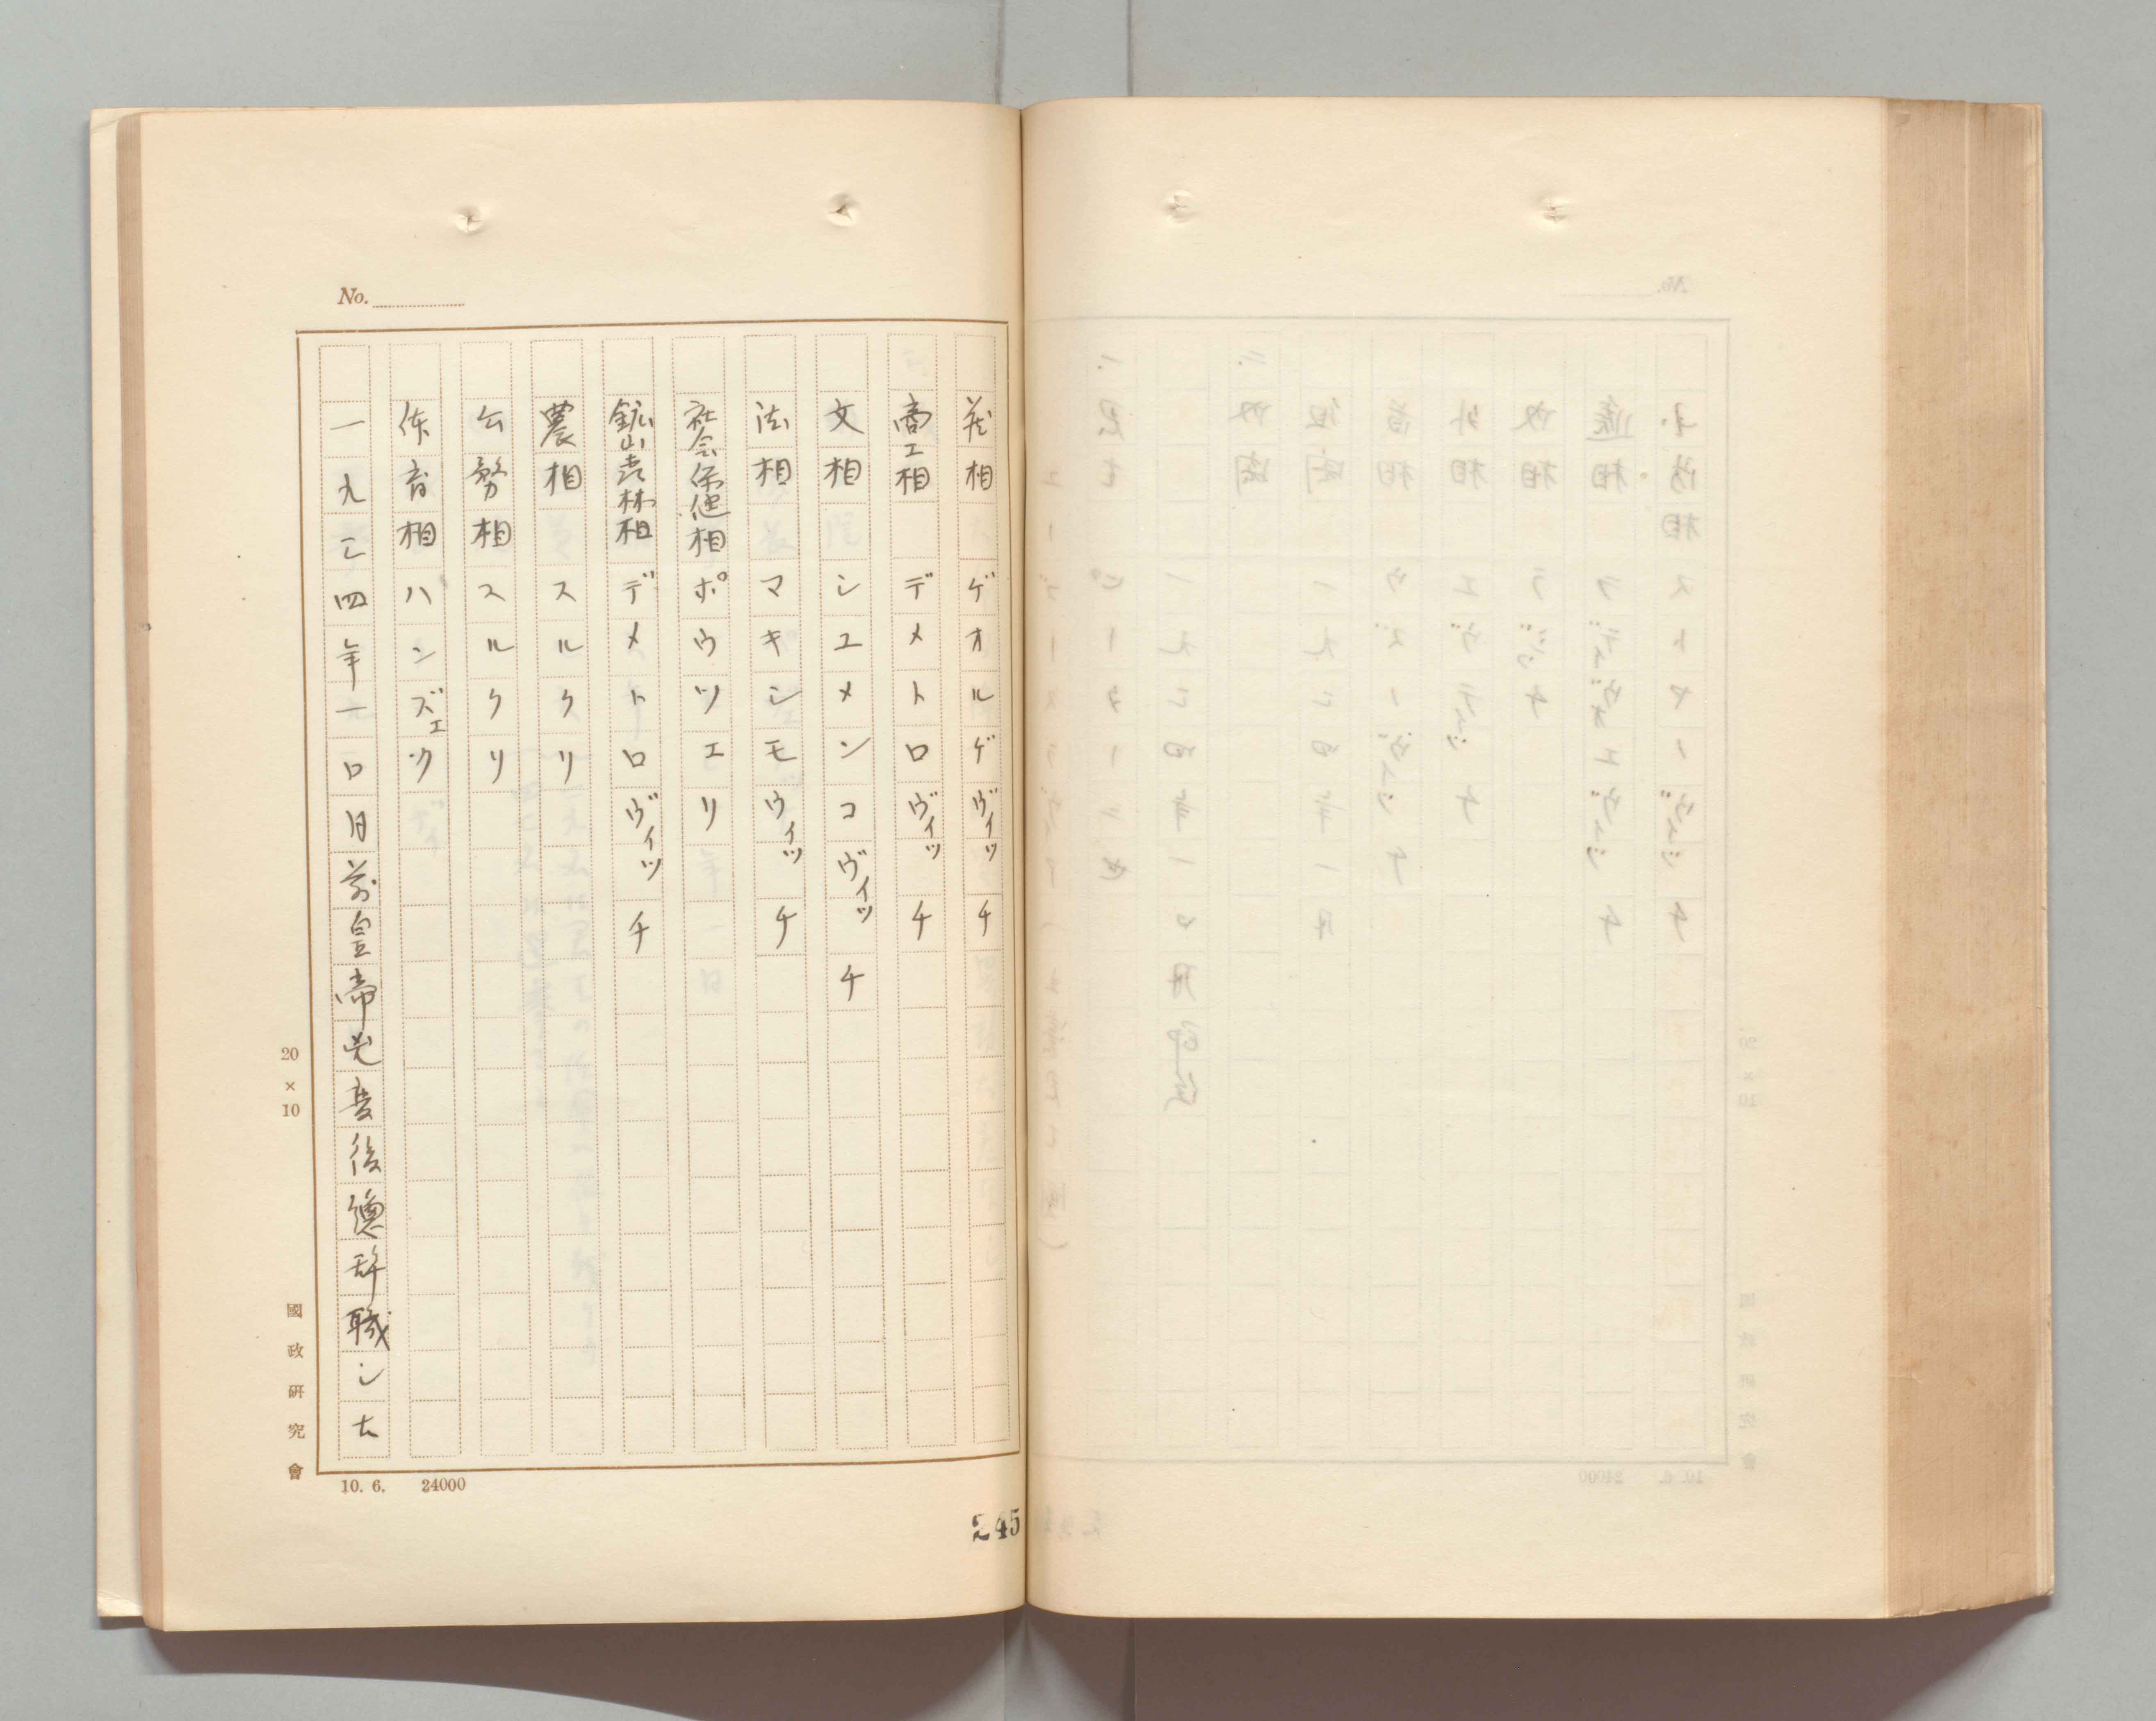 No.
藏相 ゲオルゲヴィッチ
商工相 デメトロヴィッチ
文相 シユメンコヴィッチ
法相 マキシモヴィッチ
社会保健相 ポウツエリ
鉱山農林相 デメトロヴィッチ
農相 スルクリ
公務相 スルクリ
体育相 ハンズェク
一九三四年一〇月前皇帝兇変後総辞職シ大
20×10
國政研究會
10. 6. 24000
245